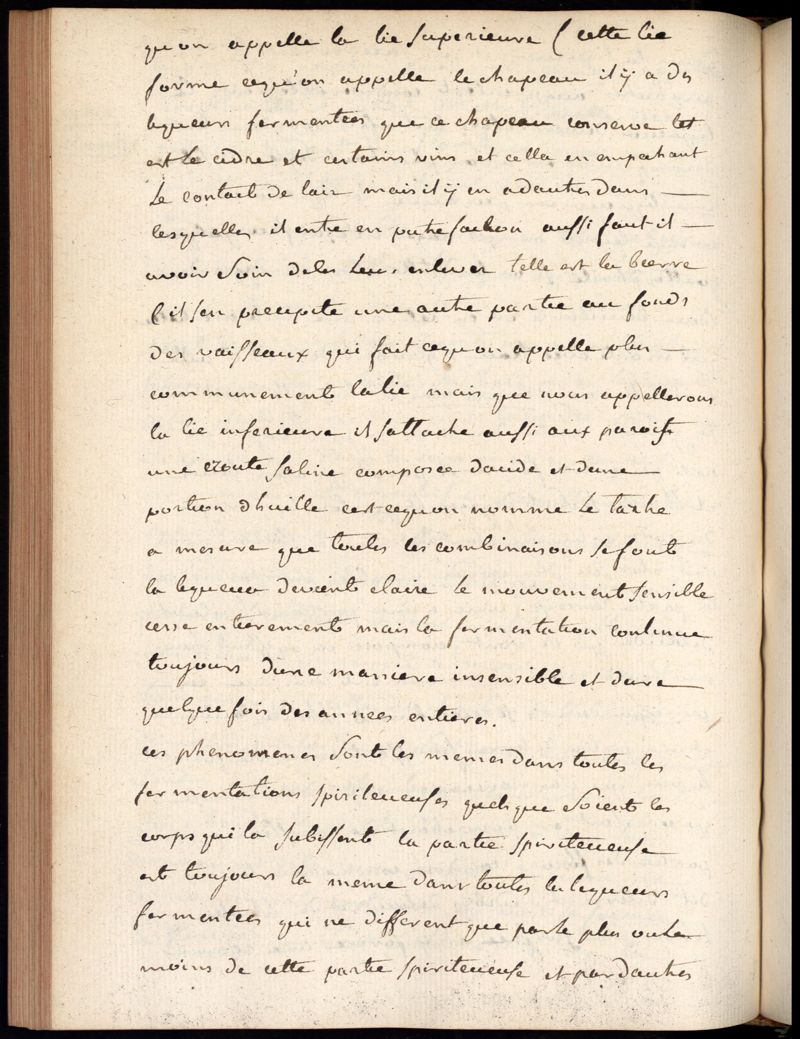 qu'on appelle la lie superieure (cette lie
forme cequ'on appelle le chapeau il y a des
liqueurs fermentées que ce chapeau conserve
est le cidre et certains vins et cella en empechant
le contact de lair mais il y en a dautres dans —
lesquelles il entre en putrefaction aussi faut il —
avoir soin de les enlever telle est la bierre
(il sen precipite une autre partie au fonds
des vaisseaux qui fait cequon appelle plus —
communement la lie mais que nous appellerons
la lie inferieure il sattache aussi aux parois
une croute saline composée dacide et dune —
portion dhuille cest cequon nomme le tartre
a mesure que toutes les combinaisons se font
la liqueur devient claire le mouvement sensible
cesse entierement mais la fermentation continue
toujours dune maniere insensible et dure —
quelque fois des années entieres.
ces phenomenes sont les memes dans toutes les
fermentations spiritueuses quelque soient les
corps qui la subissent la partie spiritueuse
est toujours la meme dans toutes les liqueurs
fermentées qui ne different que par le plus ou le
moins de cette partie spiritueuse et par dautres